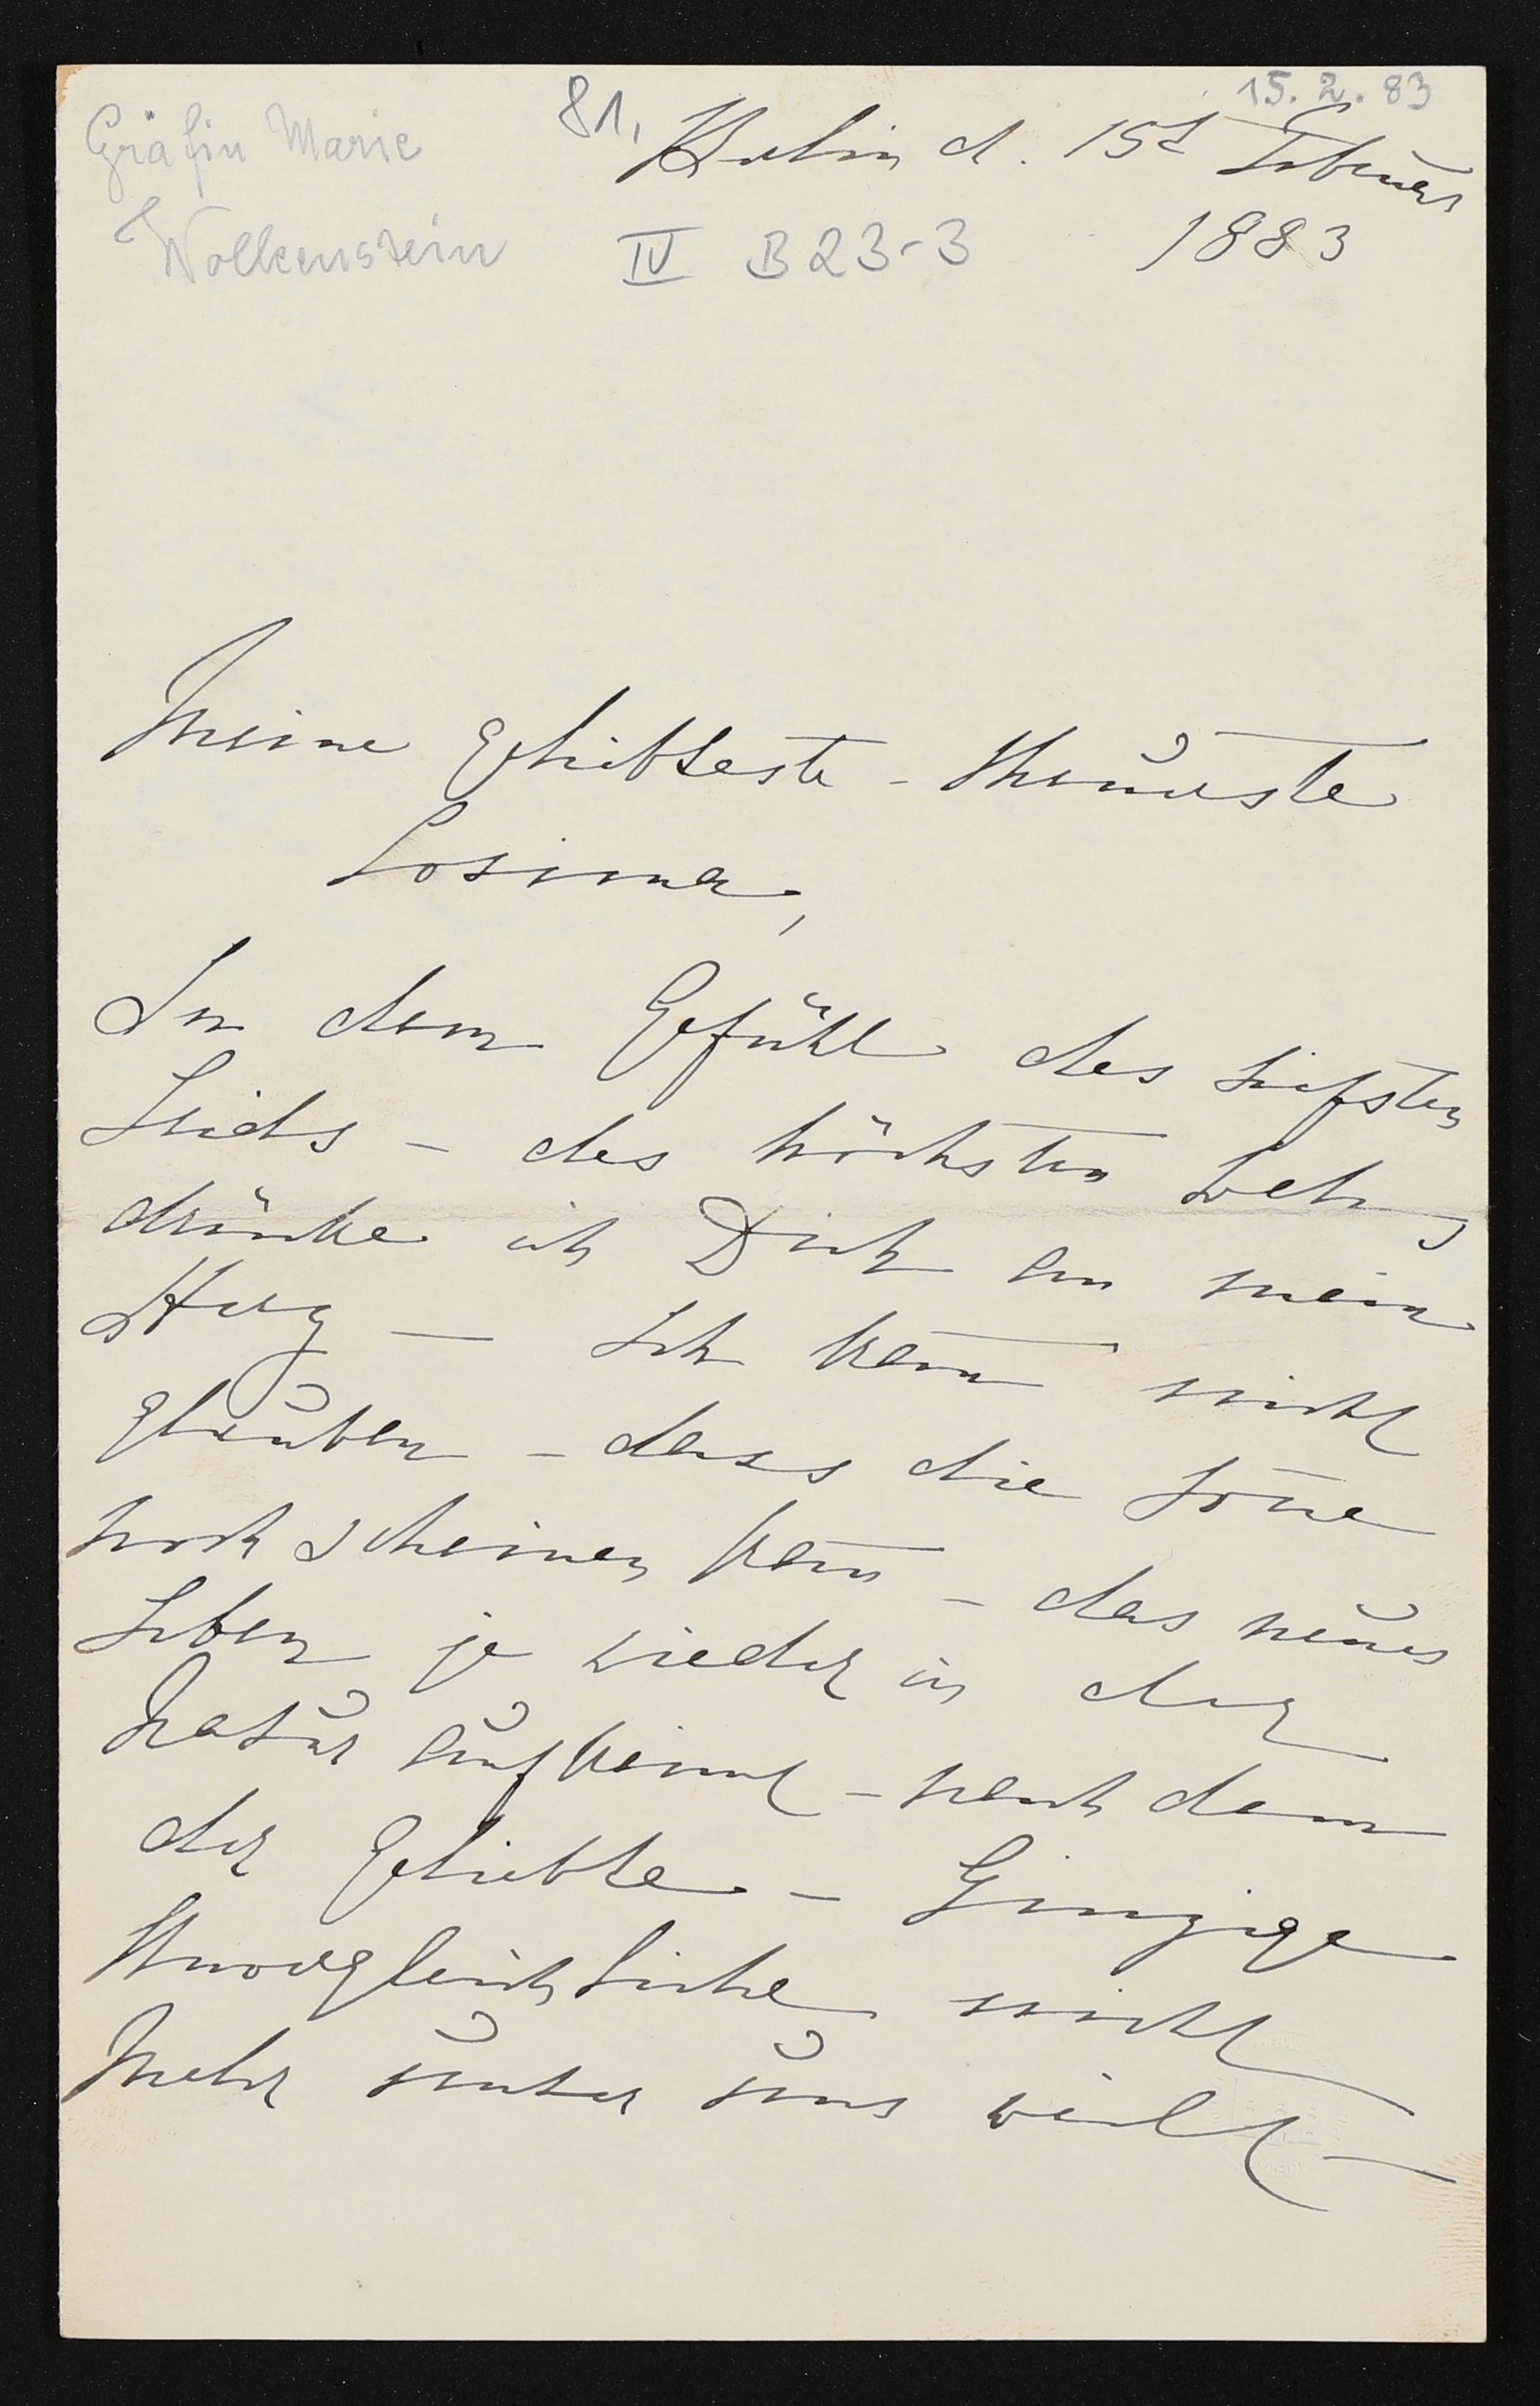 15.2.83
Gräfin Marie
Wolkenstein
81, Berlin d. 15t Februar
1883
IV B 23-3
Meine geliebteste - theuerste
Cosima,
In dem Gefühl des tiefsten
Leids - des höchsten Wehs
drücke ich Dich an mein
Herz — Ich kan̄ nicht
glauben - dass die Son̄e
noch scheinen kan̄ - das neues
Leben je wieder in der
Natur aufkeimt - nach dem
der geliebte - Einzige
Unvergleichliche nicht
mehr unter uns weilt —